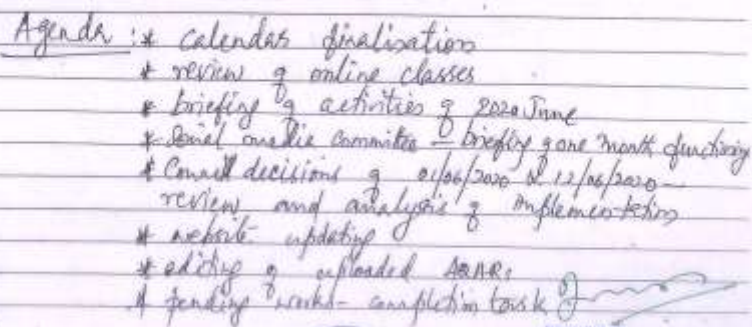 Agenda :* calendar finalisation
* review of online classes
* briefing of activities of 2020 June
* Social media committee - briefing of one month functioning
* Council decisions of 01/06/2020 & 12/06/2020 -
review and analysis of implementation
* website updating
* editing of uploaded AQARs
* pending works - completion task